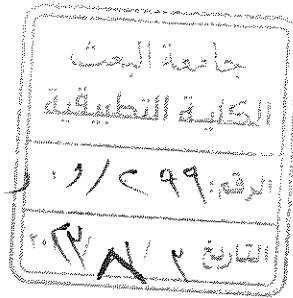 جامعة البعث
الكلية التطبيقية
الرقم: ٢٩٩ / و ر
التاريخ ٢ / ٨ / ٢٠٢٣